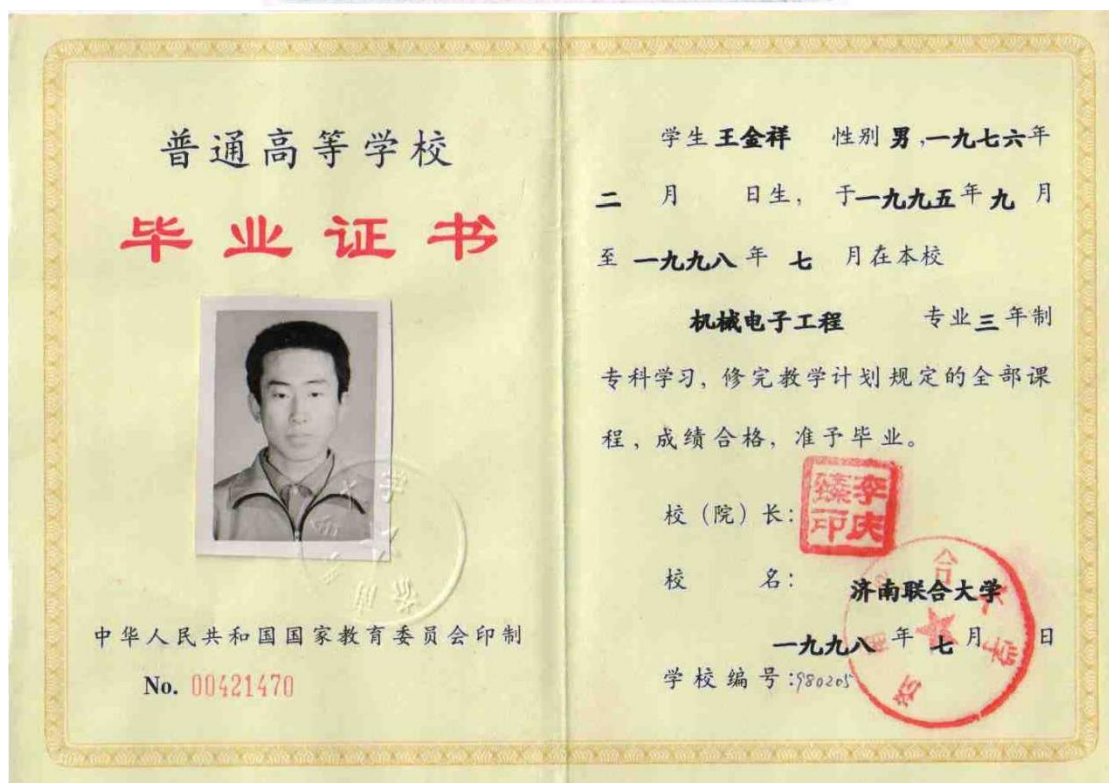 普通高等学校
毕业证书
中华人民共和国国家教育委员会印制
No. 00421470
学生 王金祥 性别 男,一九七六年
二 月 日生, 于一九九五年九 月
至 一九九八 年 七 月在本校
机械电子工程 专业三年制
专科学习, 修完教学计划规定的全部课
程, 成绩合格, 准予毕业。
校(院)长:
李庆臻印
校 名: 济南联合大学
一九九八 年 七 月 日
学校编号:980205